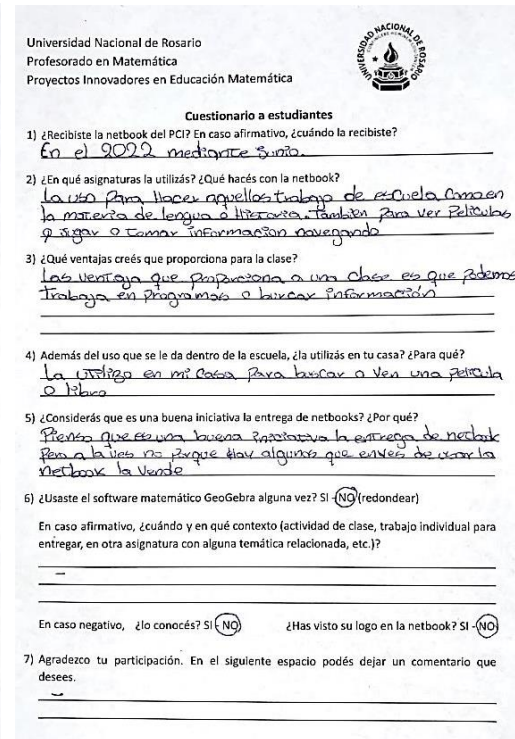 Universidad Nacional de Rosario
Profesorado en Matemática
Proyectos Innovadores en Educación Matemática
UNIVERSIDAD NACIONAL DE ROSARIO
Cuestionario a estudiantes
1) ¿Recibiste la netbook del PCI? En caso afirmativo, ¿cuándo la recibiste?
En el 2022 mediante Junio.
2) ¿En qué asignaturas la utilizás? ¿Qué hacés con la netbook?
La uso Para Hacer aquellos trabajo de escuela Como en
la materia de lengua o Historia. También Para ver Películas
o jugar o tomar información navegando
3) ¿Qué ventajas creés que proporciona para la clase?
Las ventaja que Proporciona a una clase es que Podemos
Trabaja en programas o buscar información
4) Además del uso que se le da dentro de la escuela, ¿la utilizás en tu casa? ¿Para qué?
La utilizo en mi casa para buscar o Ven una película
o libro
5) ¿Considerás que es una buena iniciativa la entrega de netbooks? ¿Por qué?
Pienso que es una buena iniciativa la entrega de
Pero a la ves no porque Hay algunos que enves de usar la
netbook la vende
6) ¿Usaste el software matemático GeoGebra alguna vez? SI -NO (redondear)
En caso afirmativo, ¿cuándo y en qué contexto (actividad de clase, trabajo individual para
entregar, en otra asignatura con alguna temática relacionada, etc.)?
–
En caso negativo, ¿lo conocés? SI - NO ¿Has visto su logo en la netbook? SI -NO
7) Agradezco tu participación. En el siguiente espacio podés dejar un comentario que
desees.
–